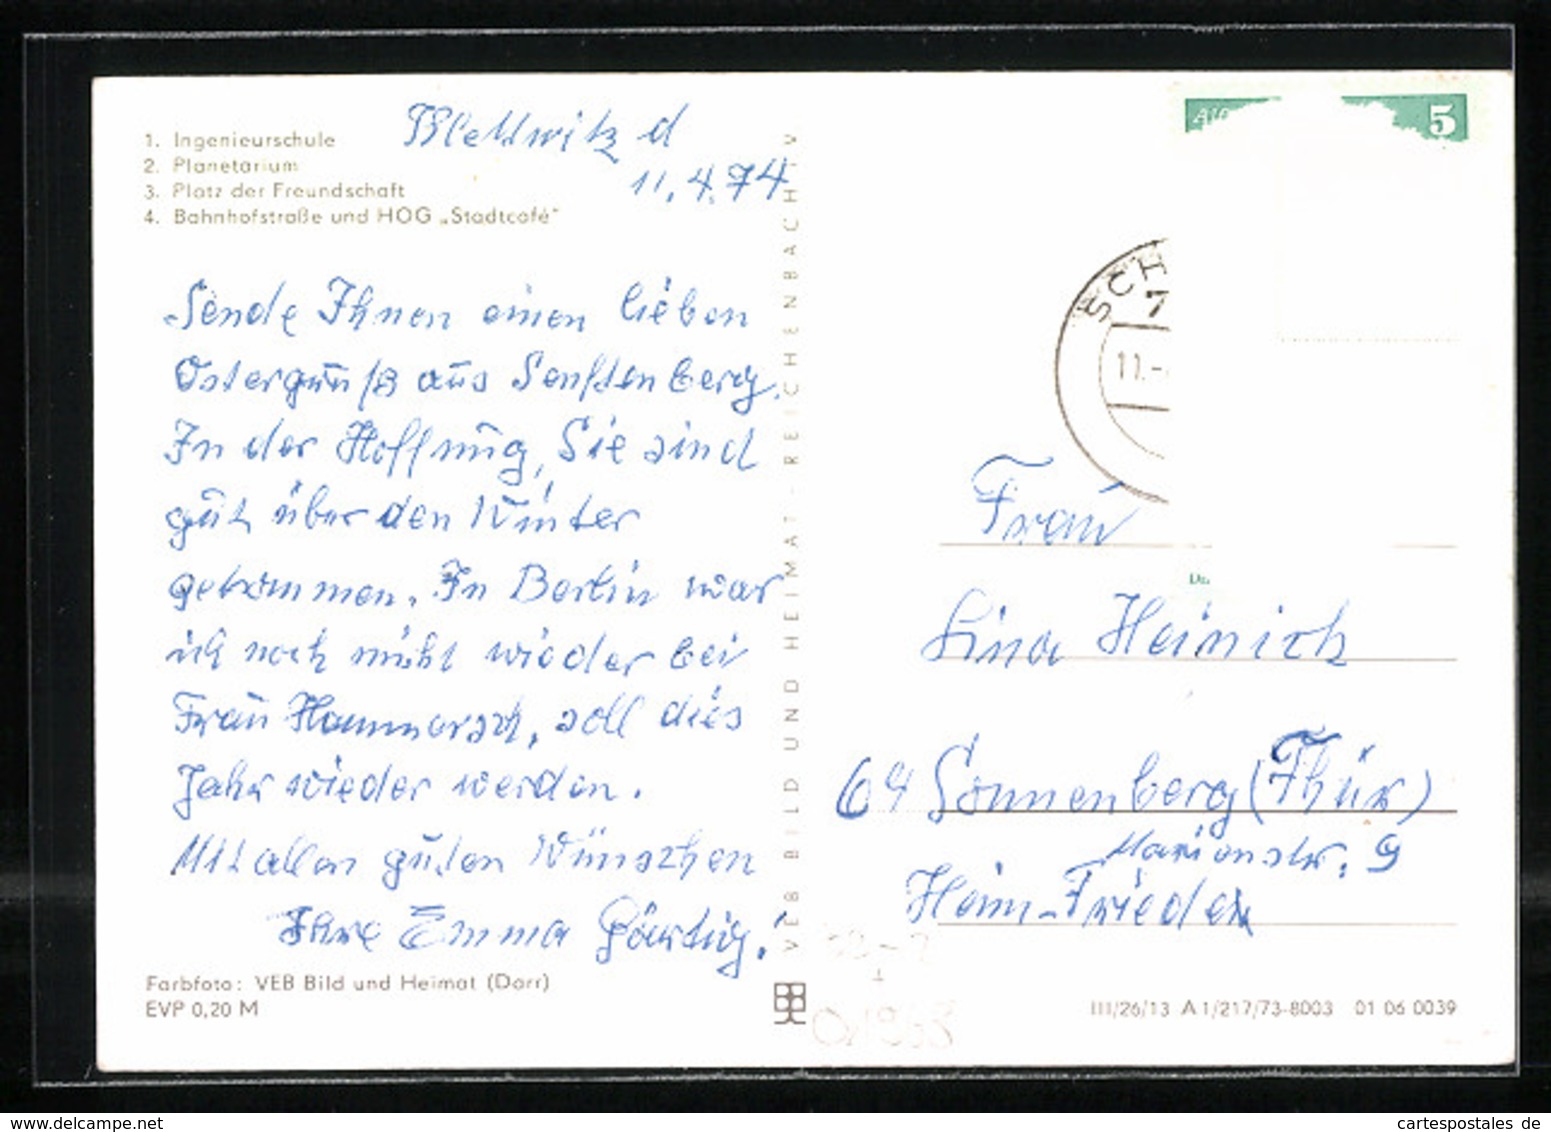 1. Ingenieurschule
2. Planetarium
3. Platz der Freundschaft
4. Bahnhofstraße und HOG „Stadtcafé“
d
11.4.74
Sende Ihnen einen lieben
Ostergruß aus Senftenberg.
In der Hoffnung, Sie sind
gut über den Winter
gekommen. In Berlin war
ich noch nicht wieder bei
Frau soll dies
Jahr wieder werden.
Mit allen guten Wünschen
Ihre Emma
Farbfoto: VEB Bild und Heimat (Darr)
EVP 0,20 M
VEB BILD UND HEIMAT REICHENBACH I V
5
SCH
7
11.-
Frau
Lina Heinich
64 Sonnenberg (Thür)
Marienstr. 9
Heim-Frieden
III/26/13 A 1/217/73-8003 01 06 0039
cartespostales.de